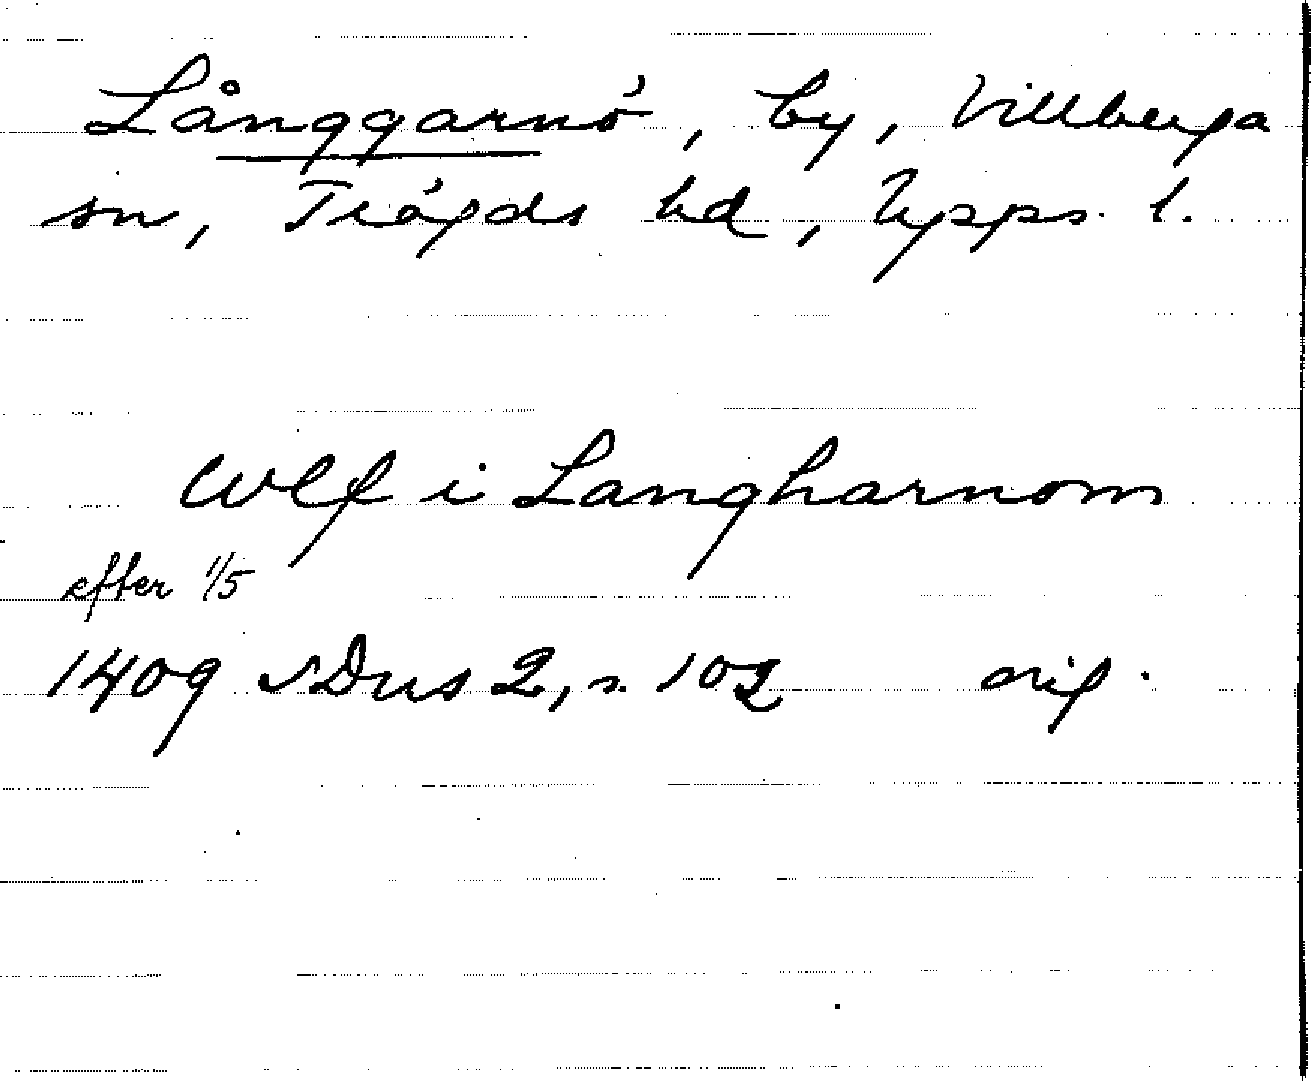 Långgarnö, by, Villberga
sn, Trögds hd, Upps. l.
Wlf i Langharnom
efter 1/5
1409 SDns 2, s. 102 orig.